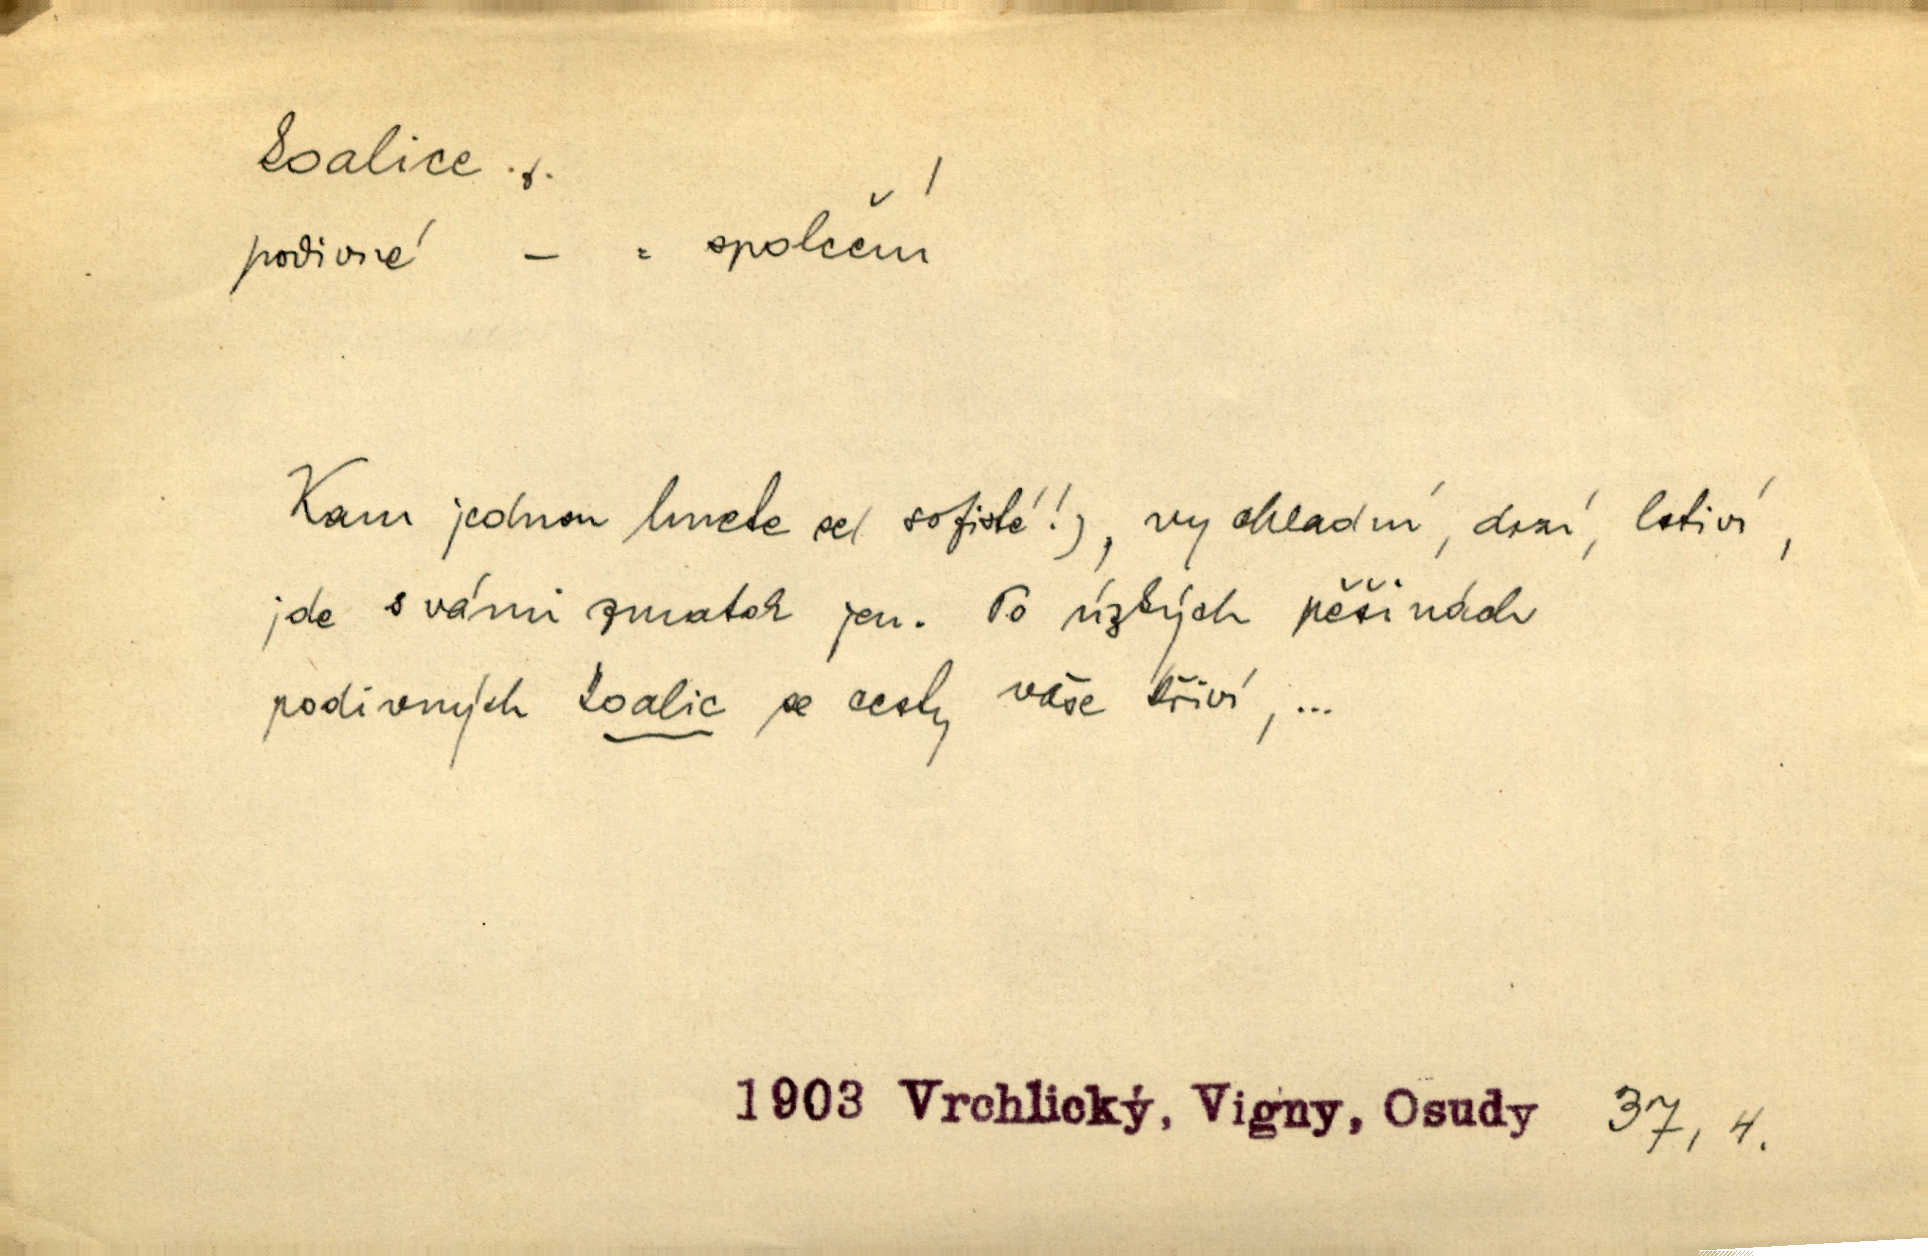 koalice .f.
podivné – = spolčení
Kam jednou hnete se( sofisté!), vy chladní, drzí, lstiví,
jde s vámi zmatek jen. Po úzkých pěšinách
podivných koalic se cesty vaše křiví, ...
1903 Vrchlický, Vigny, Osudy 37, 4.